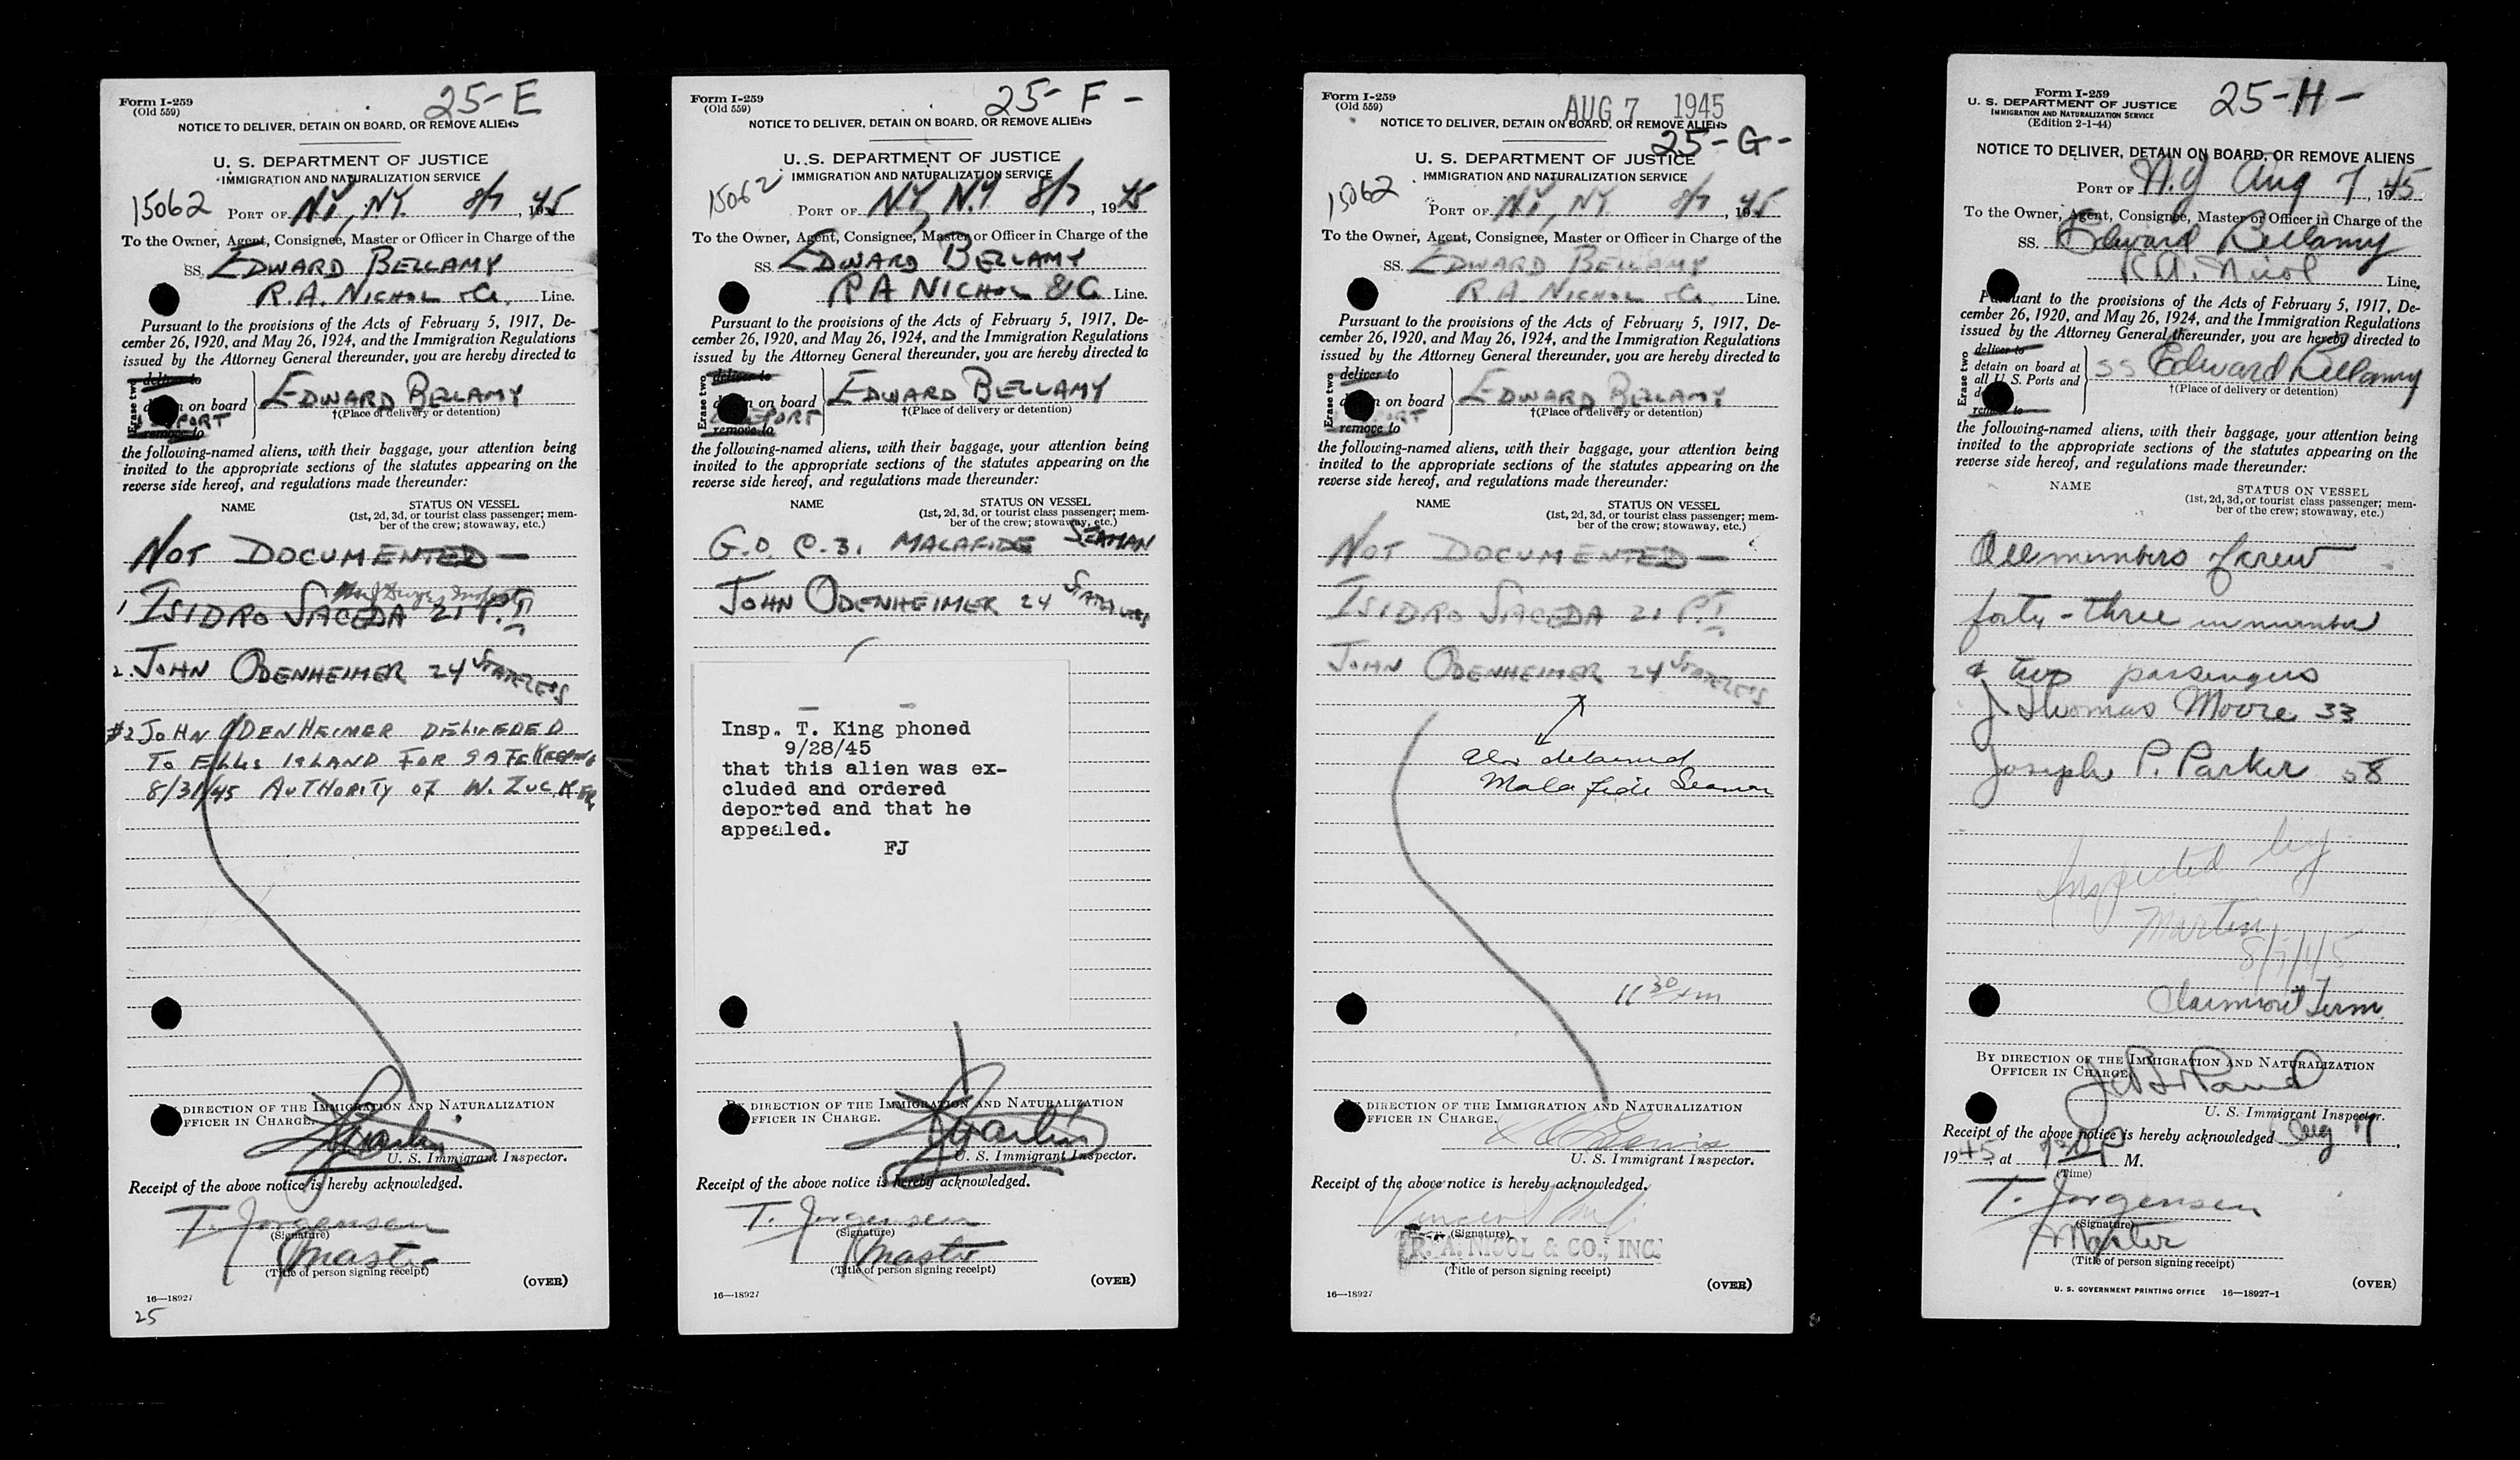 25-E
Form I-259
(Old 559)
NOTICE TO DELIVER, DETAIN ON BOARD, OR REMOVE ALIENS
U. S. DEPARTMENT OF JUSTICE
IMMIGRATION AND NATURALIZATION SERVICE
15062 PORT OF NY, NY. 8/7, 1945
To the Owner, Agent, Consignee, Master or Officer in Charge of the
SS. EDWARD BELLAMY
R.A. NICHOL & Co. Line.
Pursuant to the provisions of the Acts of February 5, 1917, De-
cember 26, 1920, and May 26, 1924, and the Immigration Regulations
issued by the Attorney General thereunder, you are hereby directed to
Erase two
deliver to
on board
remove to
EDWARD BELLAMY
†(Place of delivery or detention)
the following-named aliens, with their baggage, your attention being
invited to the appropriate sections of the statutes appearing on the
reverse side hereof, and regulations made thereunder:
NAME STATUS ON VESSEL
(1st, 2d, 3d, or tourist class passenger; mem-
ber of the crew; stowaway, etc.)
NOT DOCUMENTED —
1 ISIDRO SACEDA 21 P.I.
2. JOHN ODENHEIMER 24 STATELESS
#2 JOHN ODENHEIMER DELIVEDED
TO ELLIS ISLAND FOR SAFEKEEPING
8/31/45 AUTHORITY OF W. ZUCKER
DIRECTION OF THE IMMIGRATION AND NATURALIZATION
FFICER IN CHARGE.
U. S. Immigrant Inspector.
Receipt of the above notice is hereby acknowledged.
T. Jorgensen
(Signature)
Master
(Title of person signing receipt)
(OVER)
16—18927
25
25-F-
Form I-259
(Old 559)
NOTICE TO DELIVER, DETAIN ON BOARD, OR REMOVE ALIENS
U. S. DEPARTMENT OF JUSTICE
IMMIGRATION AND NATURALIZATION SERVICE
15062 PORT OF N.Y, N.Y 8/7, 1945
To the Owner, Agent, Consignee, Master or Officer in Charge of the
SS. EDWARD BELLAMY
R A NICHOL & Co Line.
Pursuant to the provisions of the Acts of February 5, 1917, De-
cember 26, 1920, and May 26, 1924, and the Immigration Regulations
issued by the Attorney General thereunder, you are hereby directed to
Erase two
deliver to
on board
remove to
EDWARD BELLAMY
†(Place of delivery or detention)
the following-named aliens, with their baggage, your attention being
invited to the appropriate sections of the statutes appearing on the
reverse side hereof, and regulations made thereunder:
NAME STATUS ON VESSEL
(1st, 2d, 3d, or tourist class passenger; mem-
ber of the crew; stowaway, etc.)
G.O. C.3. MALAFIDE SEAMAN
JOHN ODENHEIMER 24 STATELESS
Insp. T. King phoned
9/28/45
that this alien was ex-
cluded and ordered
deported and that he
appealed.
FJ
DIRECTION OF THE IMMIGRATION AND NATURALIZATION
FFICER IN CHARGE.
U. S. Immigrant Inspector.
Receipt of the above notice is hereby acknowledged.
T. Jorgensen
(Signature)
Master
(Title of person signing receipt)
(OVER)
16—18927
Form I-259
(Old 559)
AUG 7 1945
NOTICE TO DELIVER, DETAIN ON BOARD, OR REMOVE ALIENS
25-G-
U. S. DEPARTMENT OF JUSTICE
IMMIGRATION AND NATURALIZATION SERVICE
15062 PORT OF NY, NY 8/7, 1945
To the Owner, Agent, Consignee, Master or Officer in Charge of the
SS. EDWARD BELLAMY
R A NICHOL & Co. Line.
Pursuant to the provisions of the Acts of February 5, 1917, De-
cember 26, 1920, and May 26, 1924, and the Immigration Regulations
issued by the Attorney General thereunder, you are hereby directed to
Erase two
deliver to
on board
remove to
EDWARD BELLAMY
†(Place of delivery or detention)
the following-named aliens, with their baggage, your attention being
invited to the appropriate sections of the statutes appearing on the
reverse side hereof, and regulations made thereunder:
NAME STATUS ON VESSEL
(1st, 2d, 3d, or tourist class passenger; mem-
ber of the crew; stowaway, etc.)
NOT DOCUMENTED —
ISIDRO SACEDA 21 P.I.
JOHN ODENHEIMER 24 STATELESS
also detained
Mala fide Seaman
11 30
DIRECTION OF THE IMMIGRATION AND NATURALIZATION
FFICER IN CHARGE.
U. S. Immigrant Inspector.
Receipt of the above notice is hereby acknowledged.
Vincent
(Signature)
R. A. NICOL & CO., INC.
(Title of person signing receipt)
(OVER)
16—18927
25-H-
Form I-259
U. S. DEPARTMENT OF JUSTICE
IMMIGRATION AND NATURALIZATION SERVICE
(Edition 2-1-44)
NOTICE TO DELIVER, DETAIN ON BOARD, OR REMOVE ALIENS
PORT OF N.Y Aug 7, 1945
To the Owner, Agent, Consignee, Master or Officer in Charge of the
SS. Edward Bellamy
R.A. Nicol Line.
Pursuant to the provisions of the Acts of February 5, 1917, De-
cember 26, 1920, and May 26, 1924, and the Immigration Regulations
issued by the Attorney General thereunder, you are hereby directed to
Erase two
deliver to
detain on board at
all U. S. Ports and
remove to
SS Edward Bellamy
†(Place of delivery or detention)
the following-named aliens, with their baggage, your attention being
invited to the appropriate sections of the statutes appearing on the
reverse side hereof, and regulations made thereunder:
NAME STATUS ON VESSEL
(1st, 2d, 3d, or tourist class passenger; mem-
ber of the crew; stowaway, etc.)
All members of crew
forty-three in number
& two passengers
J. Thomas Moore 33
Joseph P. Parker 58
Inspected by
Martin
8/7/45
Claremont Term.
BY DIRECTION OF THE IMMIGRATION AND NATURALIZATION
OFFICER IN CHARGE.
U. S. Immigrant Inspector.
Receipt of the above notice is hereby acknowledged Aug 7,
1945, at P M.
(Time)
T. Jorgensen
(Signature)
Master
(Title of person signing receipt)
(OVER)
U. S. GOVERNMENT PRINTING OFFICE 16—18927-1